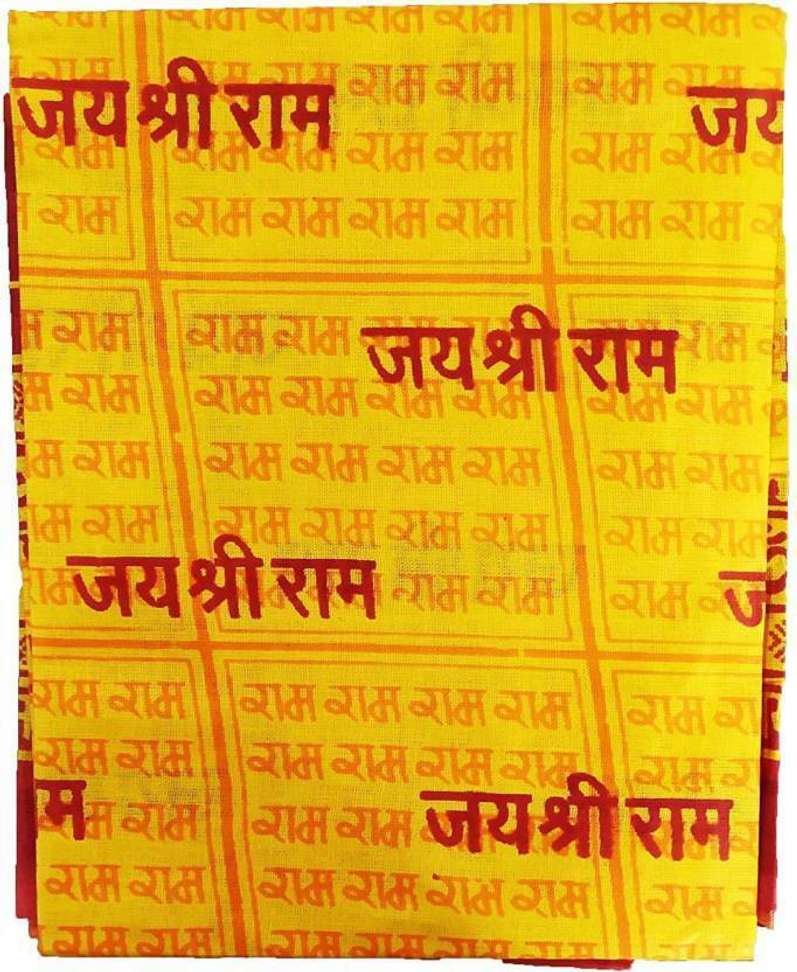 राम राम राम राम राम राम
राम राम राम राम राम
जय श्री राम जय
राम राम राम राम राम राम राम
राम राम राम राम राम राम राम
राम राम राम राम
जय श्री राम
राम राम राम राम राम राम राम
राम राम राम राम राम राम राम
राम राम राम राम राम राम राम
जय श्री राम
राम राम राम
राम राम राम राम राम राम राम
राम राम राम राम राम राम राम
म जय श्री राम
राम राम राम राम
राम राम राम राम राम राम राम
राम राम राम राम राम राम